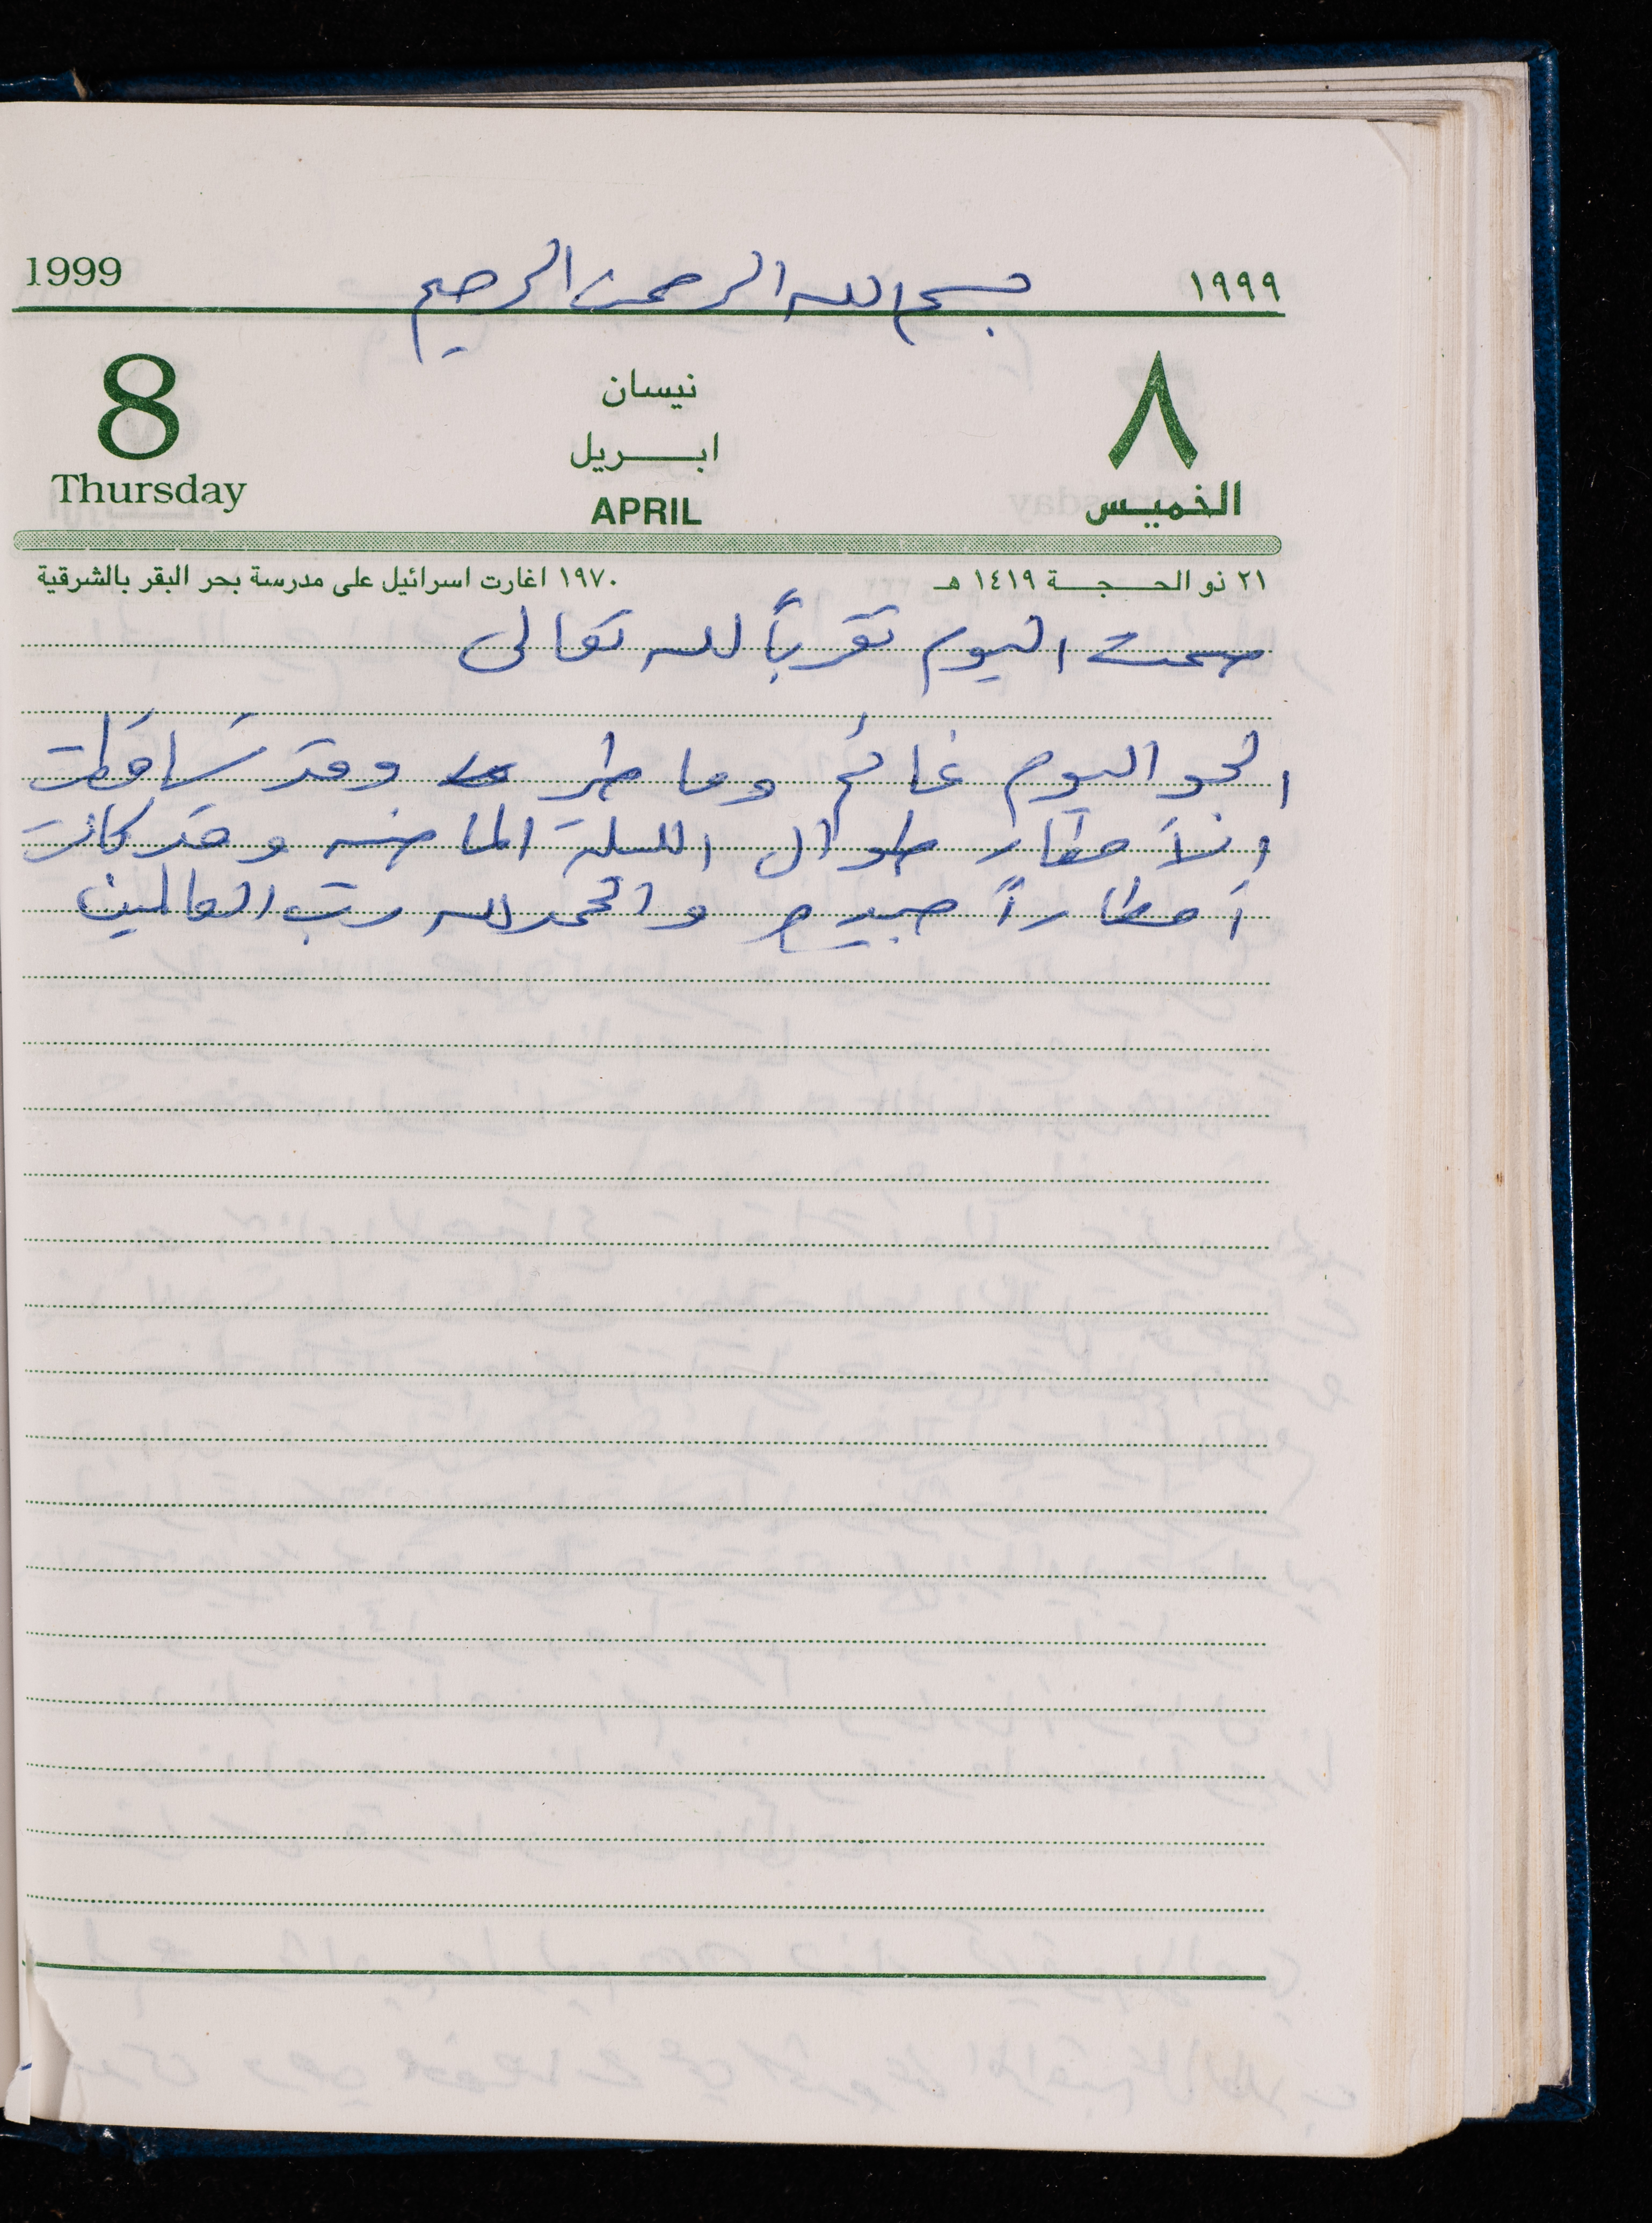 1999 بسم الله الرحمن الرحيم ١٩٩٩
8 نيسان ٨
ابريل
Thursday APRIL الخميس
٢١ ذو الحجة ١٤١٩ هـ ١٩٧٠ اغارت اسرائيل على مدرسة بحر البقر بالشرقية
صمت اليوم تقرباً لله تعالى
الجو اليوم غائم وماطر وقد تساقطت
الأمطار طوال الليلة الماضية وقد كانت
أمطاراً جيدة والحمد لله رب العالمين